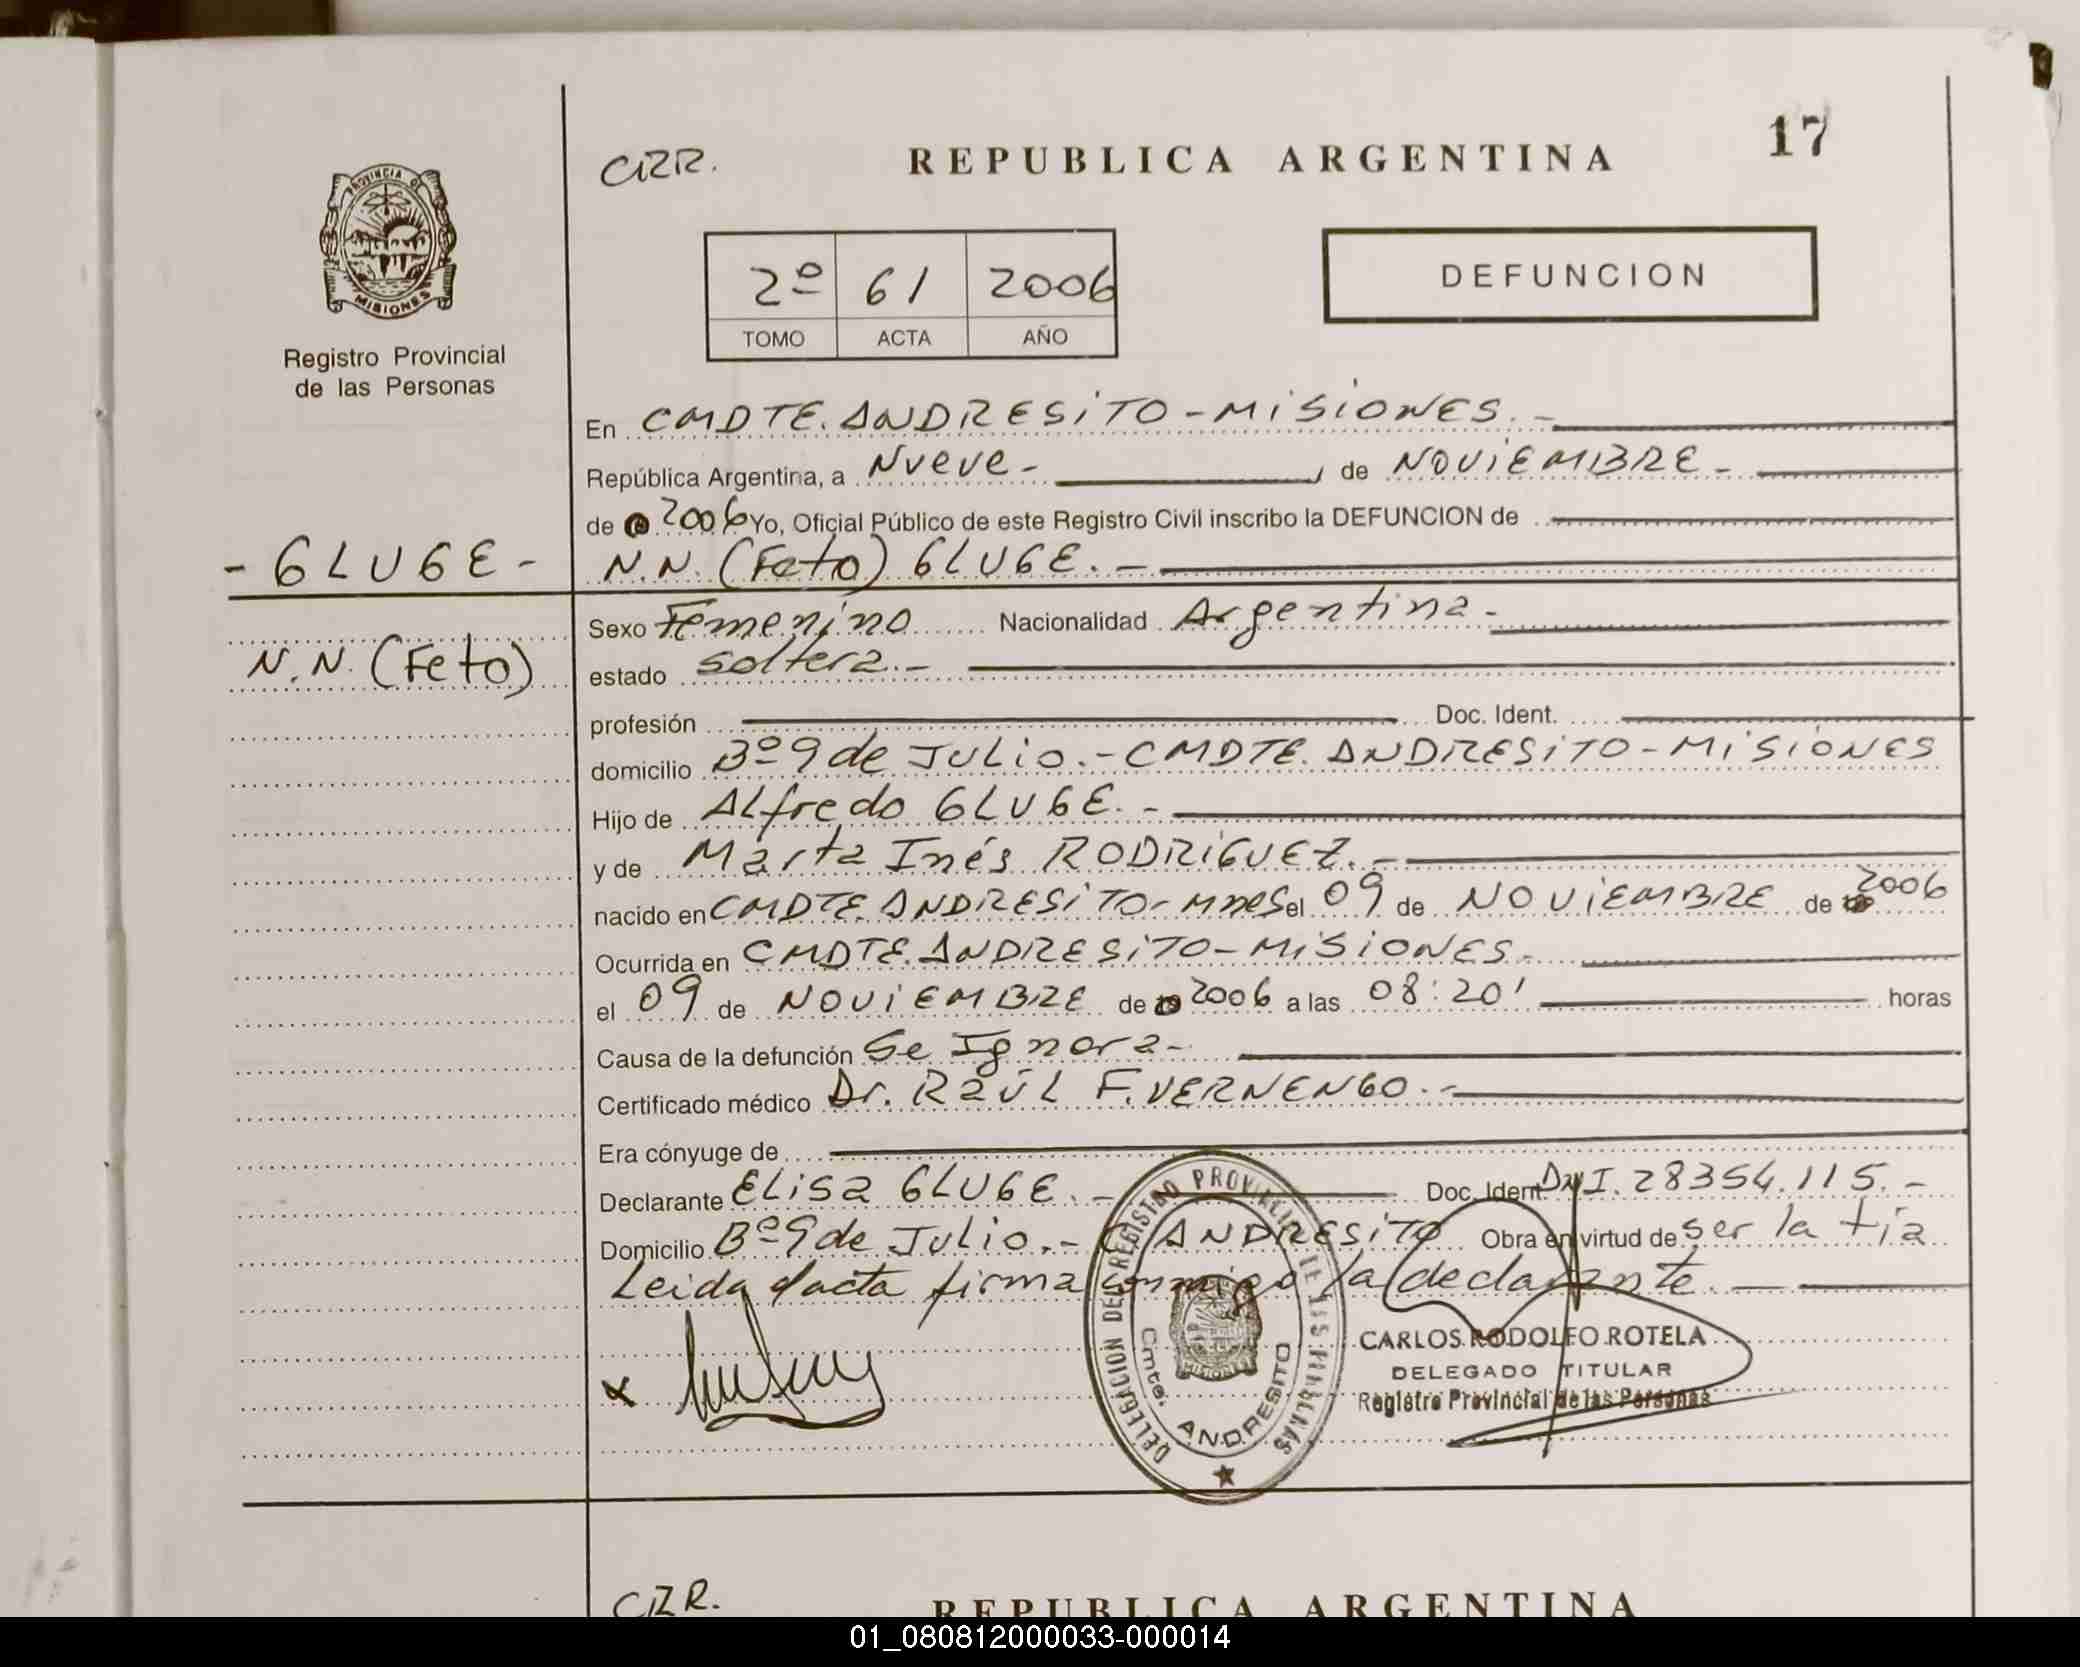 CRR.
REPUBLICA ARGENTINA
17
PROVINCIA DE
MISIONES
Registro Provincial
de las Personas
2º 61 2006
TOMO ACTA AÑO
DEFUNCION
En CMDTE. ANDRESITO - MISIONES. -
República Argentina, a Nueve - de NOVIEMBRE -
de 2006 Yo, Oficial Público de este Registro Civil inscribo la DEFUNCION de
- GLUGE -
N.N. (Feto) GLUGE. -
N.N. (Feto)
Sexo Femenino Nacionalidad Argentina -
estado soltera. -
profesión Doc. Ident.
domicilio Bº 9 de JULio. - CMDTE. ANDRESITO - MISIONES
Hijo de ALfredo GLUGE. -
y de Marta Inés RODRIGUEZ. -
nacido en CMDTE. ANDRESITO - Mnes el 09 de NOVIEMBRE de 2006
Ocurrida en CMDTE. ANDRESITO - MISIONES. -
el 09 de NOVIEMBRE de 2006 a las 08:20' horas
Causa de la defunción Se Ignora -
Certificado médico Dr. RAÚL F. VERNENGO. -
Era cónyuge de
Declarante ELisa GLUGE. - Doc. Ident. DNI. 28354.115. -
Domicilio Bº 9 de JULio. - C. ANDRESITO Obra en virtud de ser la tía
Leida el acta firma conmigo la declarante. -
x
DELEGACION DEL REGISTRO PROVINCIAL DE LAS PERSONAS
MISIONES
Cmte. ANDRESITO
CARLOS RODOLFO ROTELA
DELEGADO TITULAR
Registro Provincial de las Personas
CRR.
REPUBLICA ARGENTINA
01_080812000033-000014